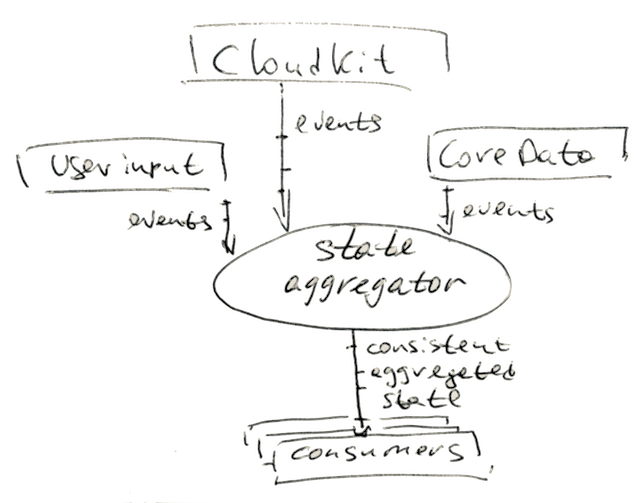 CloudKit
events
User input
Core Data
events
events
state
aggregator
consistent
aggregeted
state
consumers